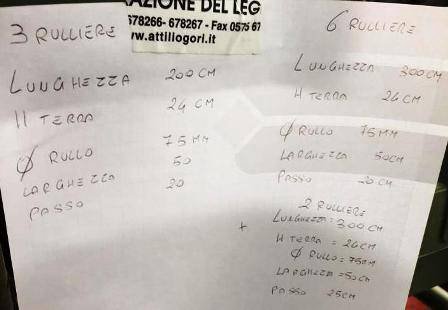 RAZIONE DEL LEG
678266- 678267 - Fax 0575 67
ww.attiliogori.it
3 RULLIERE
LUNGHEZZA 200 CM
H TERRA 24 CM
Ø RULLO 75 MM
LARGHEZZA 50
PASSO 20
6 RULLIERE
LUNGHEZZA 300 CM
H TERRA 26 CM
Ø RULLO 75 MM
LARGHEZZA 50 CM
PASSO 20 CM
+ 2 RULLIERE
LUNGHEZZA = 300 CM
H TERRA = 26 CM
Ø RULLO = 75 MM
LARGHEZZA = 50 CM
PASSO 25 CM